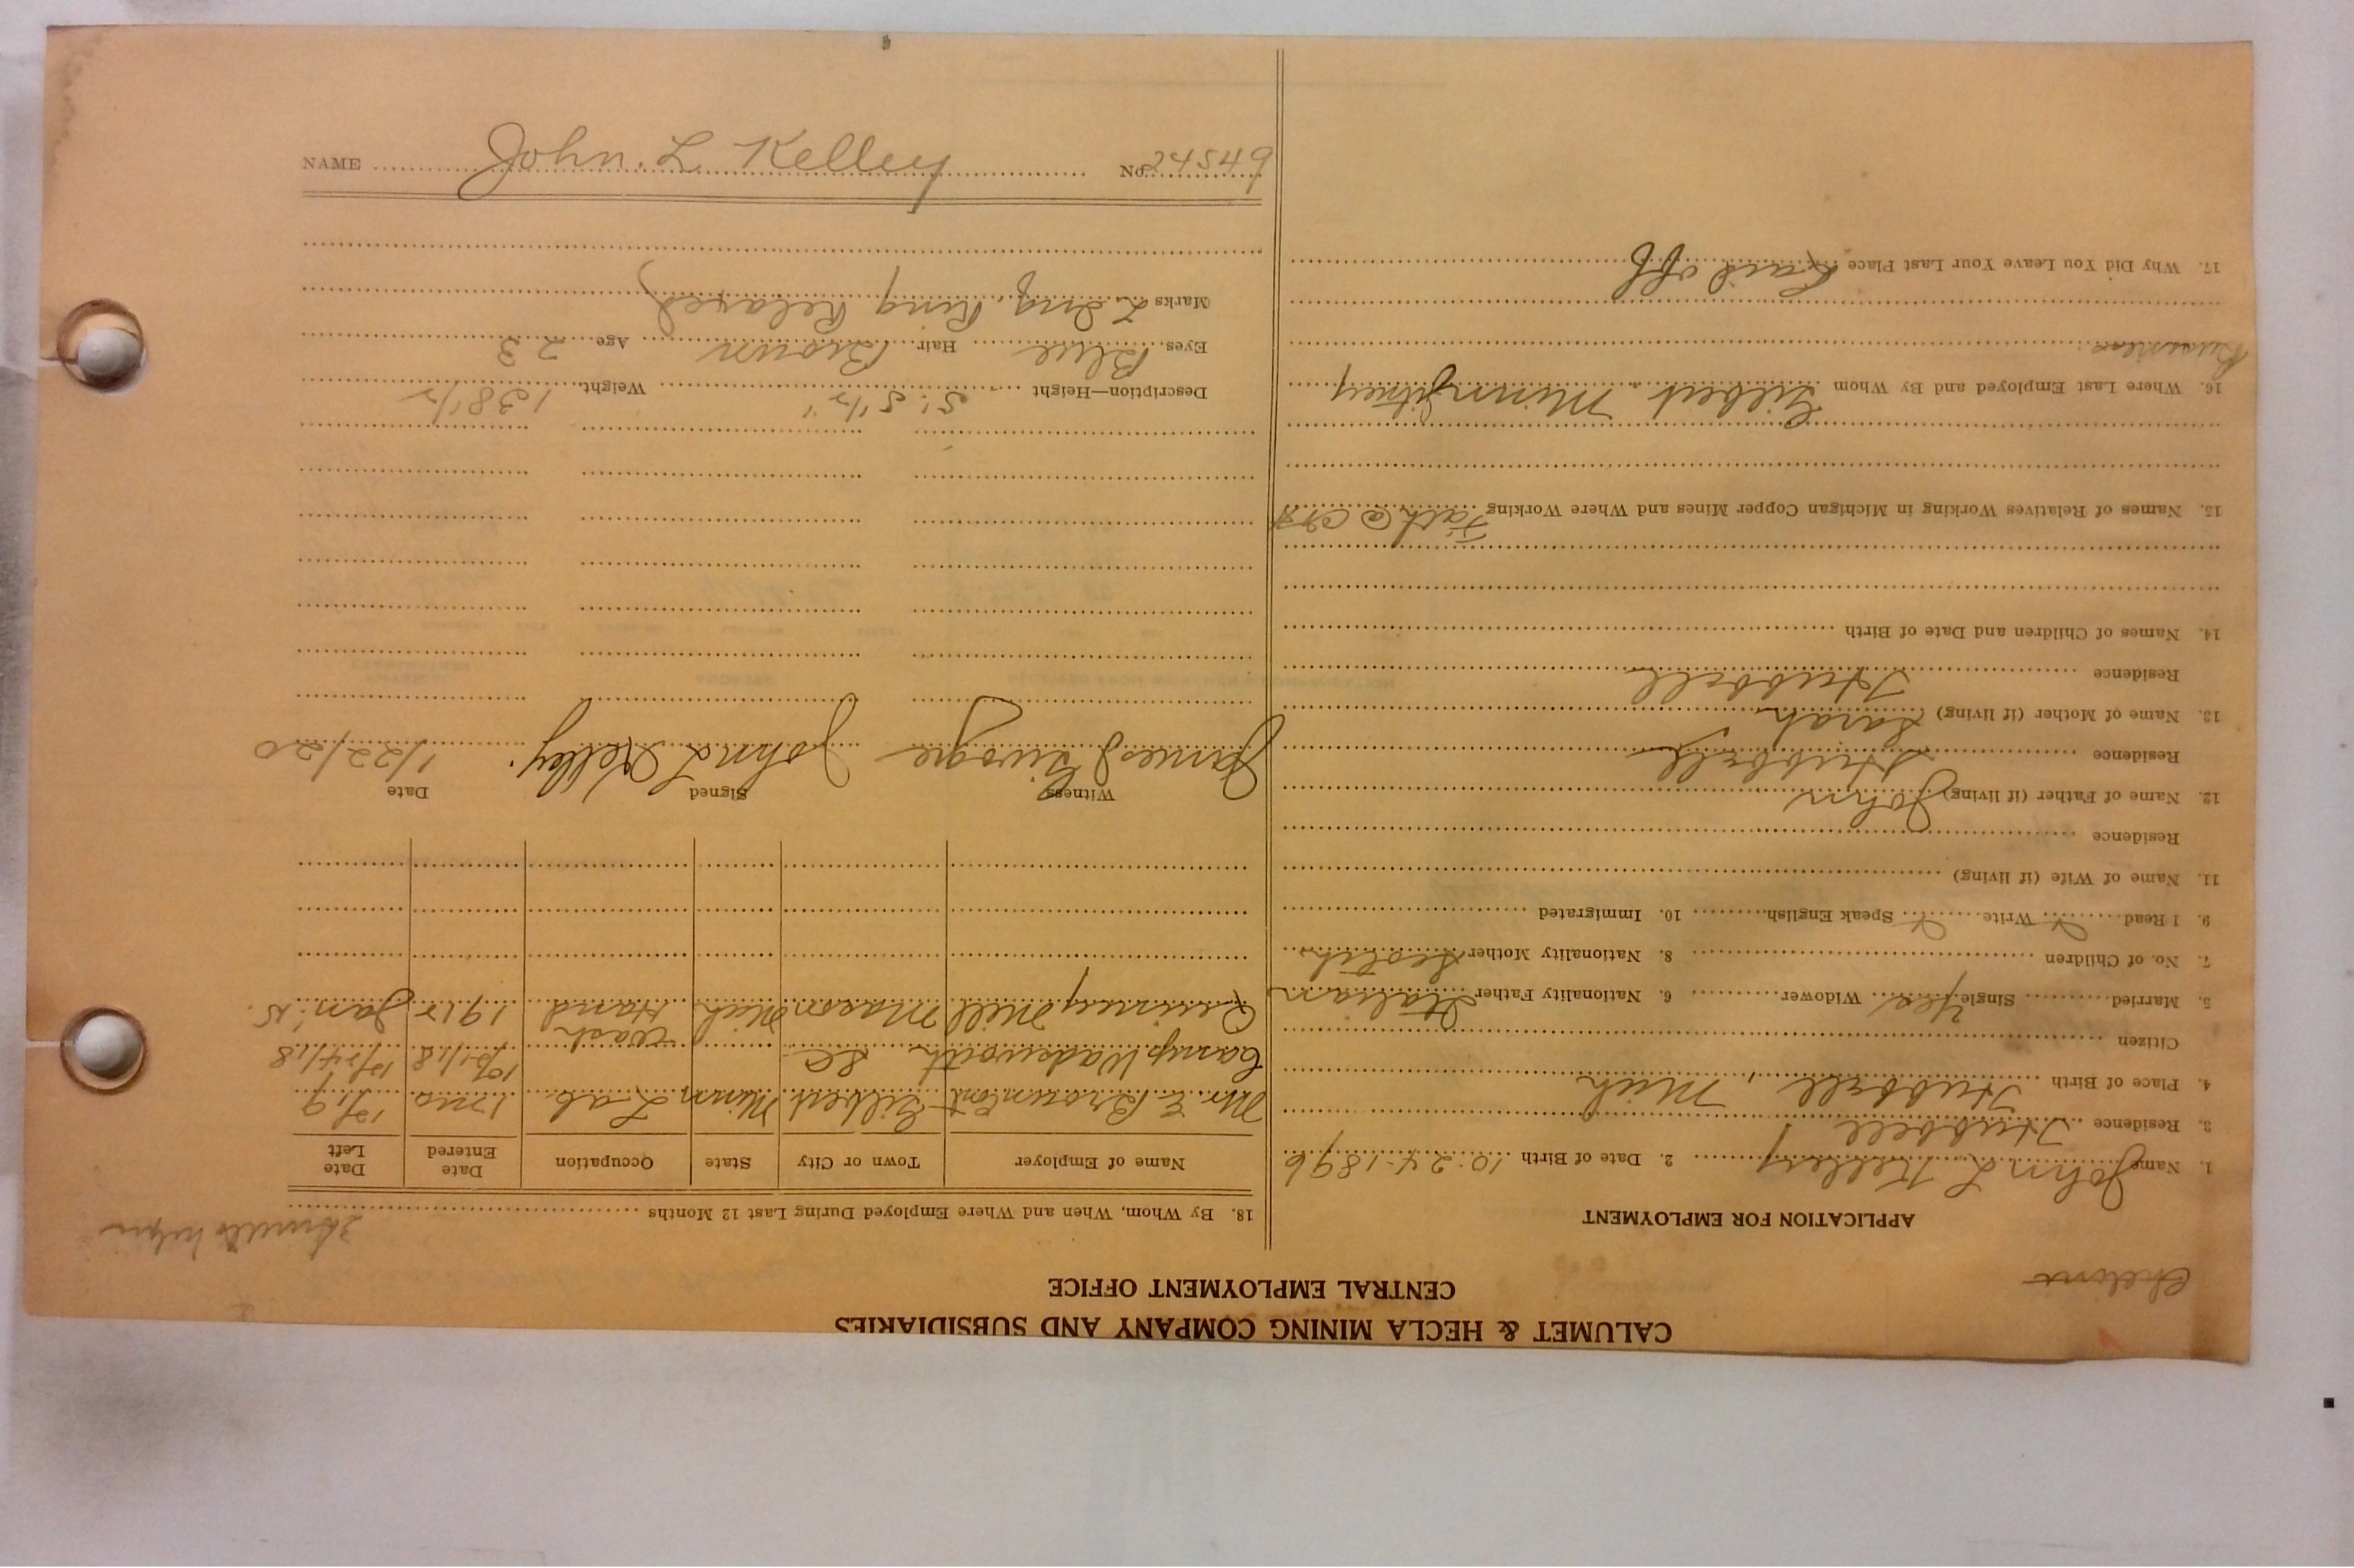 CALUMET & HECLA MINING COMPANY AND SUBSIDIARIES
CENTRAL EMPLOYMENT OFFICE
APPLICATION FOR EMPLOYMENT
1. Name John L Kelley 2. Date of Birth 10-24-1896
3. Residence Hubbell
4. Place of Birth Hubbell, Mich
Citizen
5. Married Single Yes Widower 6. Nationality Father Italian
7. No. of Children 8. Nationality Mother Scotch
9. I Read Write Speak English 10. Immigrated
11. Name of Wife (if living)
Residence
12. Name of Father (if living) John
Residence Hubbell
13. Name of Mother (if living) Sarah
Residence Hubbell
14. Names of Children and Date of Birth
15. Names of Relatives Working in Michigan Copper Mines and Where Working Fath @ C&H
16. Where Last Employed and By Whom Gilbert Minn Jitney
Business
17. Why Did You Leave Your Last Place Laid off
helper
18. By Whom, When and Where Employed During Last 12 Months
Name of Employer Town or City State Occupation Date Entered Date Left
Mr. E. Brown Ont Gilbert Minn Lab. 1 mo 12/19
Camp Wadsworth S C 10/21/18 12/24/18
Quincy Mill Mason Mich Wash Hand 1917 Jan. 18
Witness Signed Date
James J John L Kelley. 1/22/20
Description—Height 5' 5 1/2" Weight 138 1/2
Eyes Blue Hair Brown Age 23
Marks L. Ing. Ring Relaxed
NAME John. L Kelley No. 24549